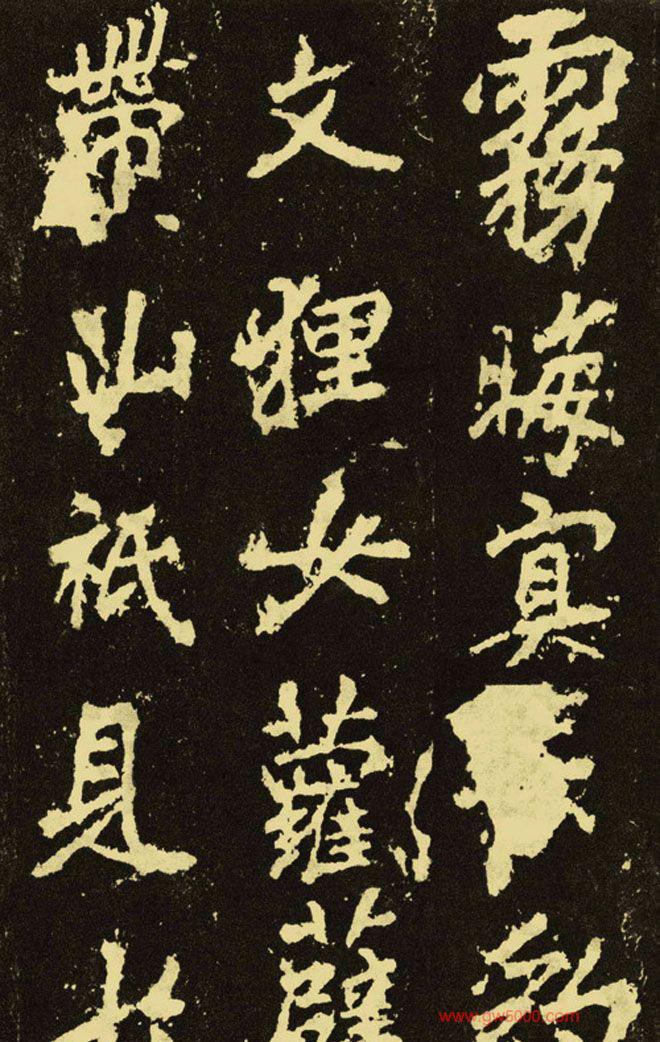 霧晦冥豹
文狸女蘿薜
帶山祇見
www.gw5000.com